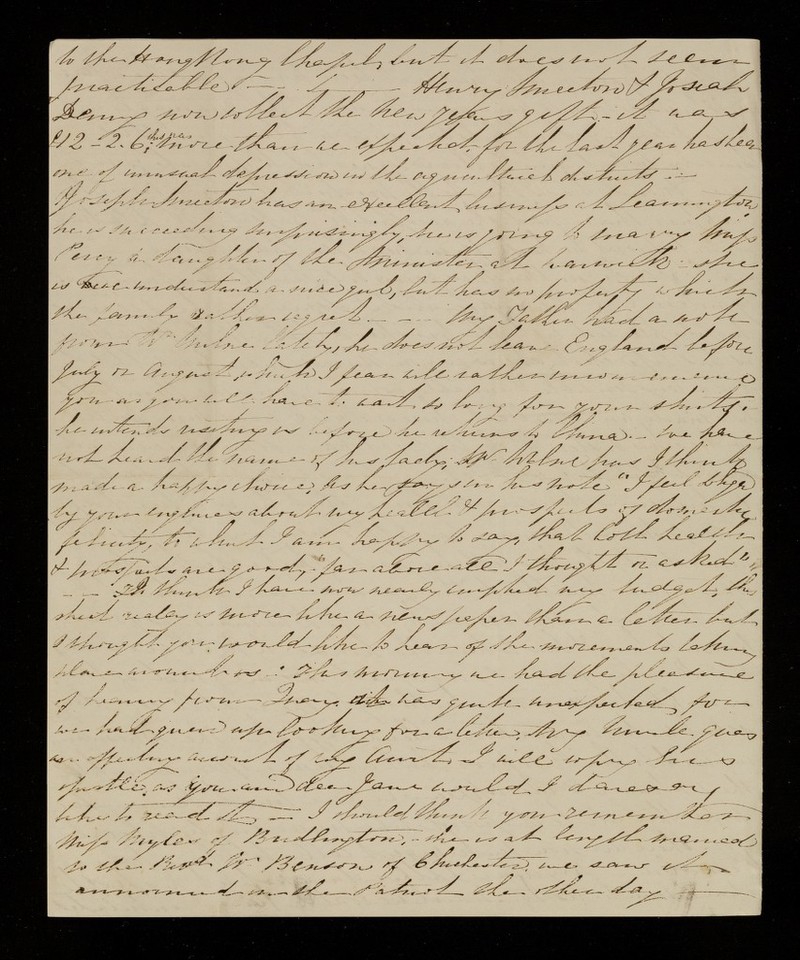 to the Hong Kong Chapel, but it does not seem
practicable — Henry Smeeton & Josiah
Denny now collect the New Years gift — it was
£12 – 2. 6. this was more than we expected, for the last year has been
one of unusual depression in the agricultural districts —
Joseph Smeeton has an excellent business at Leamington,
he is succeeding surprisingly, he is going to marry Miss
Percy a daughter of the Minister at Warwick – she
is we understand a nice girl, but has no property which
the family rather regret. — My Father had a note
from Mr Milne lately, he does not leave England before
July or August, which I fear will rather inconvenience
you as you will have to wait so long for your shirts.
he intends visiting us before he returns to China — we have
not heard the name of his lady, Mr Milne has I think
made a happy choice, as he says in his note "I feel obliged
by your enquiries about my health & prospects of domestic
felicity, to which I am happy to say, that both health
& prospects are good, "far above all I thought or asked"
— I think I have now nearly emptied my budget, this
sheet really is more like a newspaper than a letter but
I thought you would like to hear of the movements taking
place around us. This morning we had the pleasure
of hearing from it was quite unexpected, for
we had given up looking for a letter, My Uncle gives
an affecting account of my Aunt I will copy his
epistle, as you and dear Jane would I daresay
like to read it — I should think you remember
Miss Myles of Bridlington, – she is at length married
to the Revd Mr Benson of Chichester, we saw it
announced in the Patriot the other day —